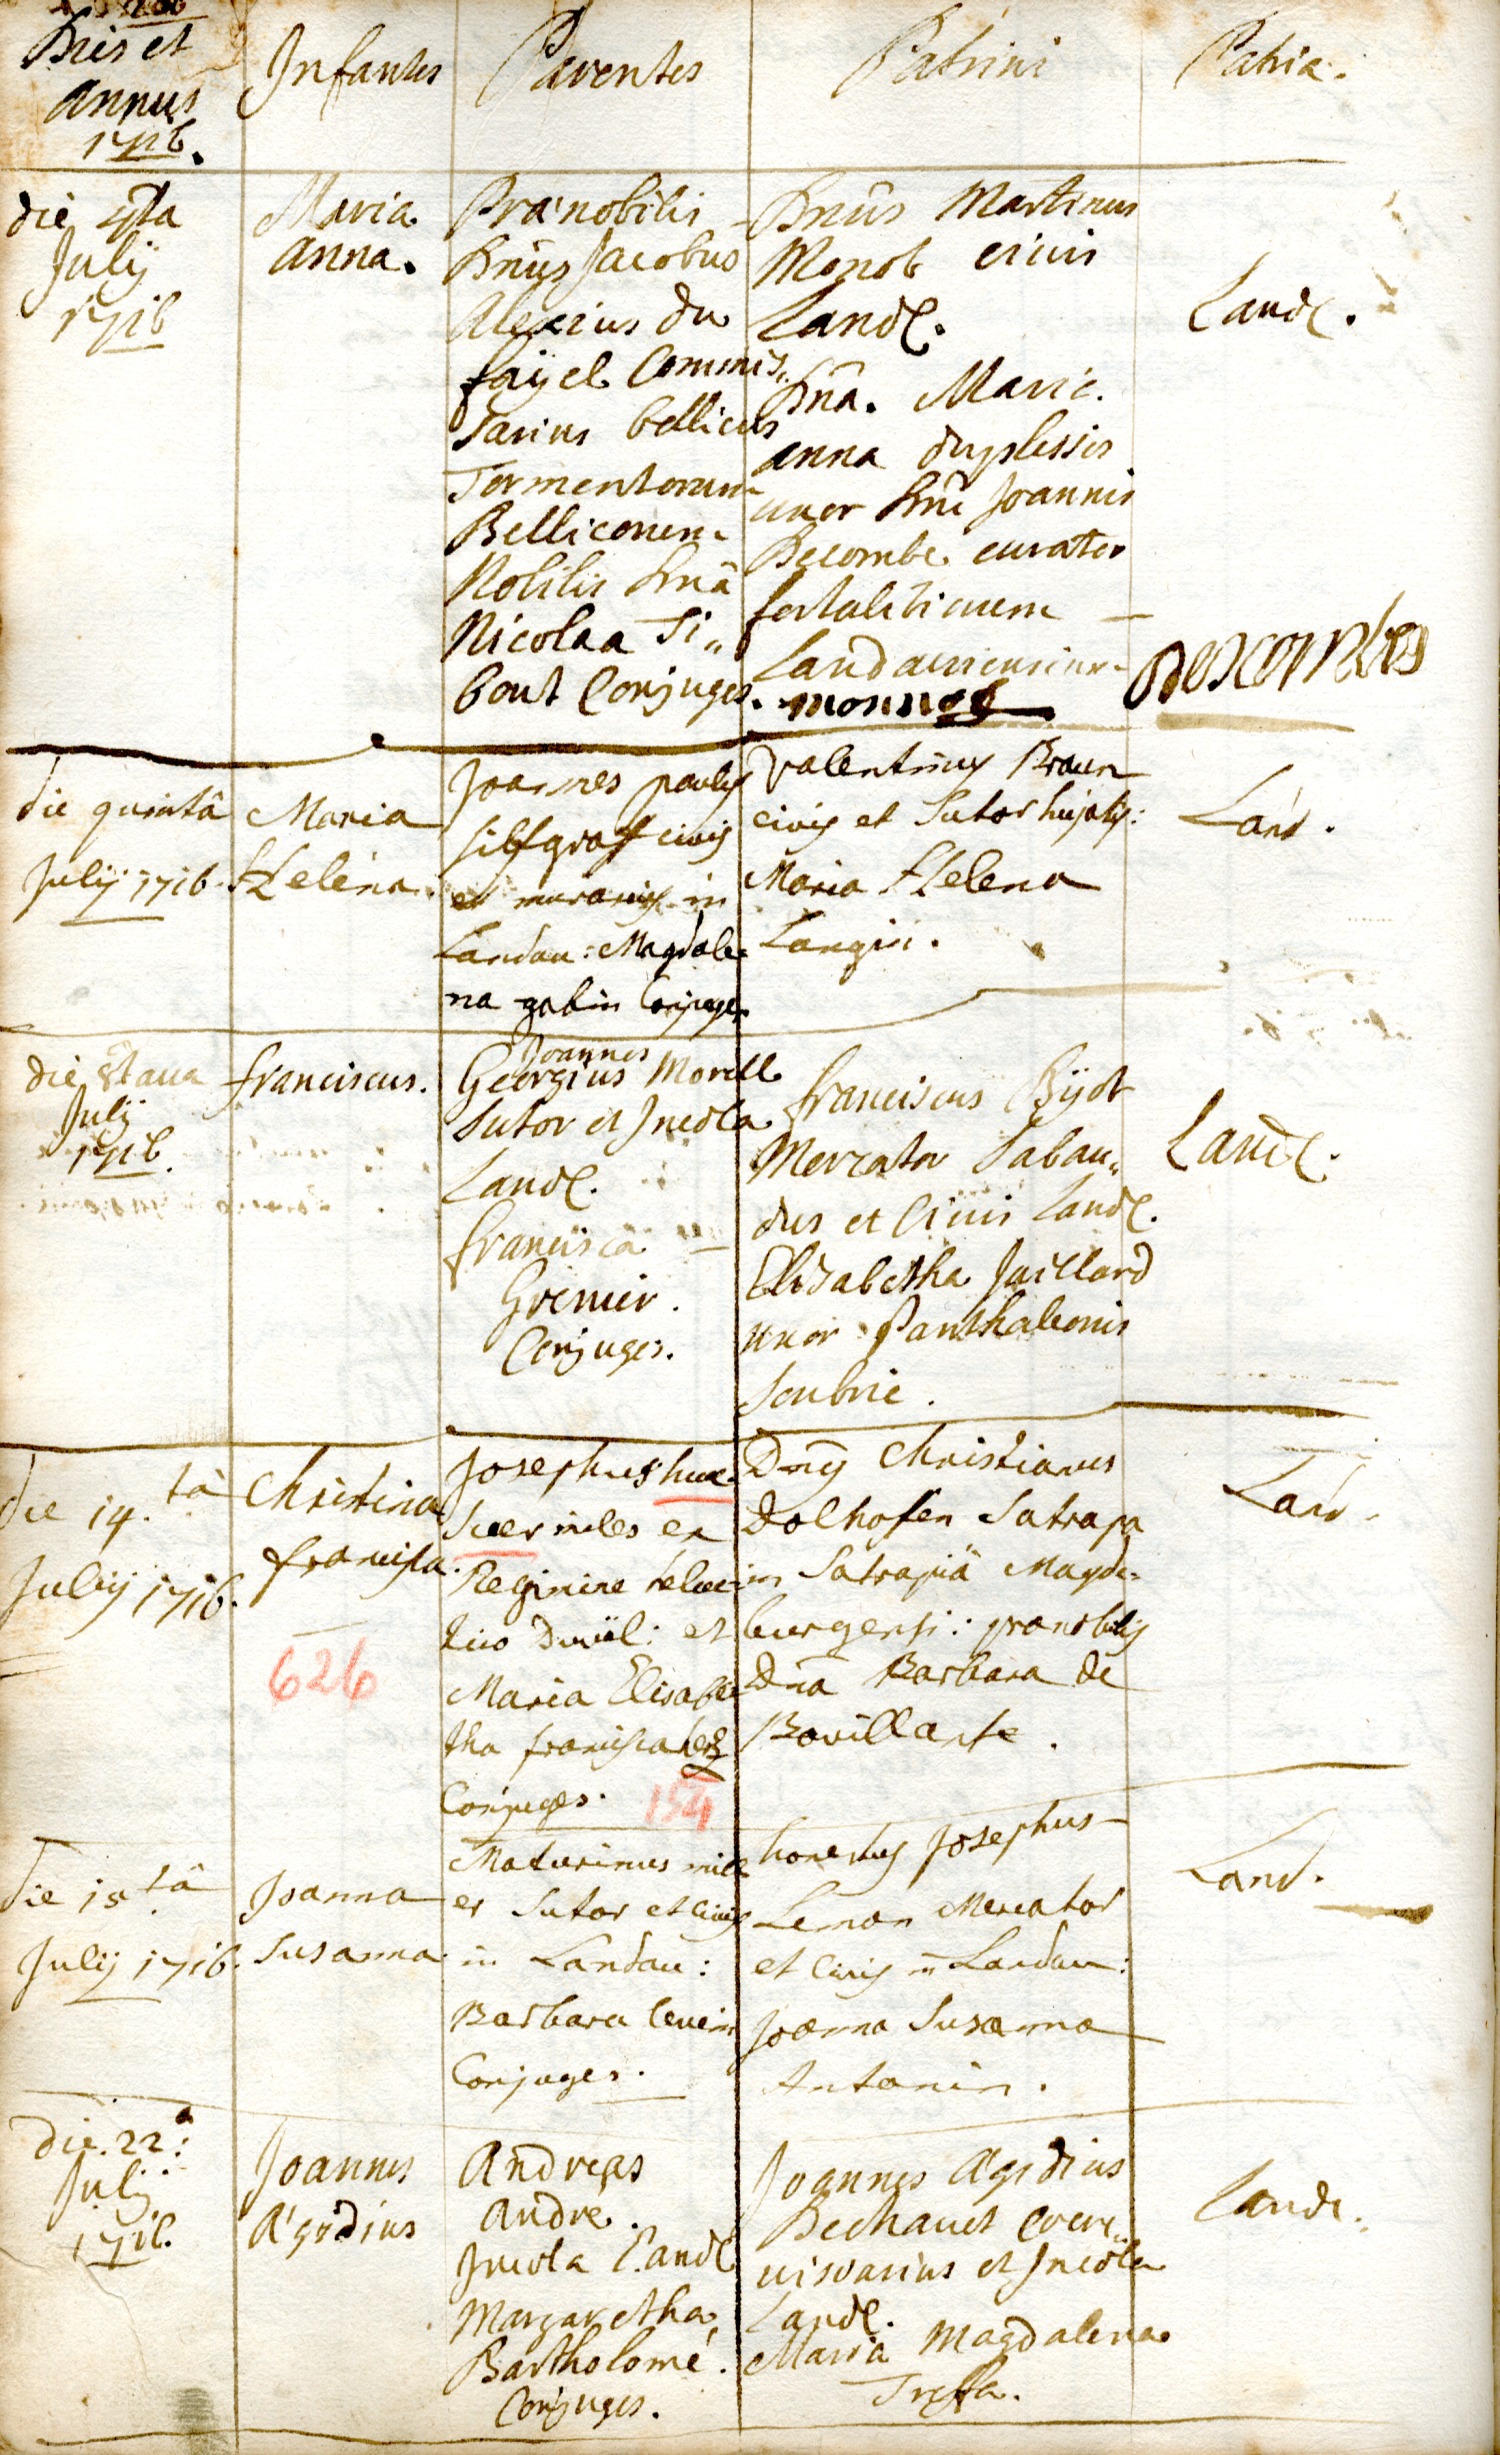 Dies et
annus
1716.
Infantes
Parentes
Patrini
Patria.
die 4ta
Julij
1716
Maria
anna.
Prænobilis
Dnüs Jacobus
Alexius du
faÿel Commis„
sarius bellicus
Tormentorum
Bellicorum
Nobilis Dnâ
Nicolaa Ti„
bout Conjuges.
Dnüs Martinus
Monob civis
LandC.
Dnâ. Maria
anna duplessis
uxor Dni Joannis
Decombe curator
fortalitiorum
Landaviensium
monnos
LandC.
Descombes
die quintâ
Julij 1716.
Maria
Helena.
Joannes paulus
silfgraf civis
et murarius in
Landau: Magdale-
na gabin Conjuges.
Valentinus Braun
civis et Sutor hujatis:
Maria Helena
Langin.
Land.
die 8taua
Julij
1716.
franciscus.
Joannes
Georgius Morell
Sutor et Incola
LandC.
francisca
Grenier.
Conjuges.
franciscus Bijot
Mercator Sabau„
dus et Civis LandC.
Elisabetha Juillard
uxor Panthaleonis
Soubrie.
LandC.
die 14.tâ
Julij 1716.
Christina
francisca.
626
Josephus hue-
Suer miles ex
Regimine helve-
tico : et
Maria Elisabe-
tha francisca
Conjuges.
154
Dnus Christianus
Dolhofen Satrapa
in Satrapiâ Magde-
burgensi: prænobilis
Dna Barbara de
Bovillarse.
Land.
die 15tâ.
Julij 1716.
Joanna
Susanna.
Maturinus mill
er Sutor et civis
in Landau:
Barbara levein
Conjuges.
honestus Josephus
Lemon Mercator
et Civis in Landau:
Joanna Susanna
Antonin.
Land.
die. 22a:
Julij
1716.
Joannes
Ægidius
Andreas
André.
Incola LandC
Margaretha
Bartholomé.
Conjuges.
Joannes Ægidius
Bechauet Cere„
uisiarius et Incola
LandC.
Maria Magdalena
Treffa.
LandC.